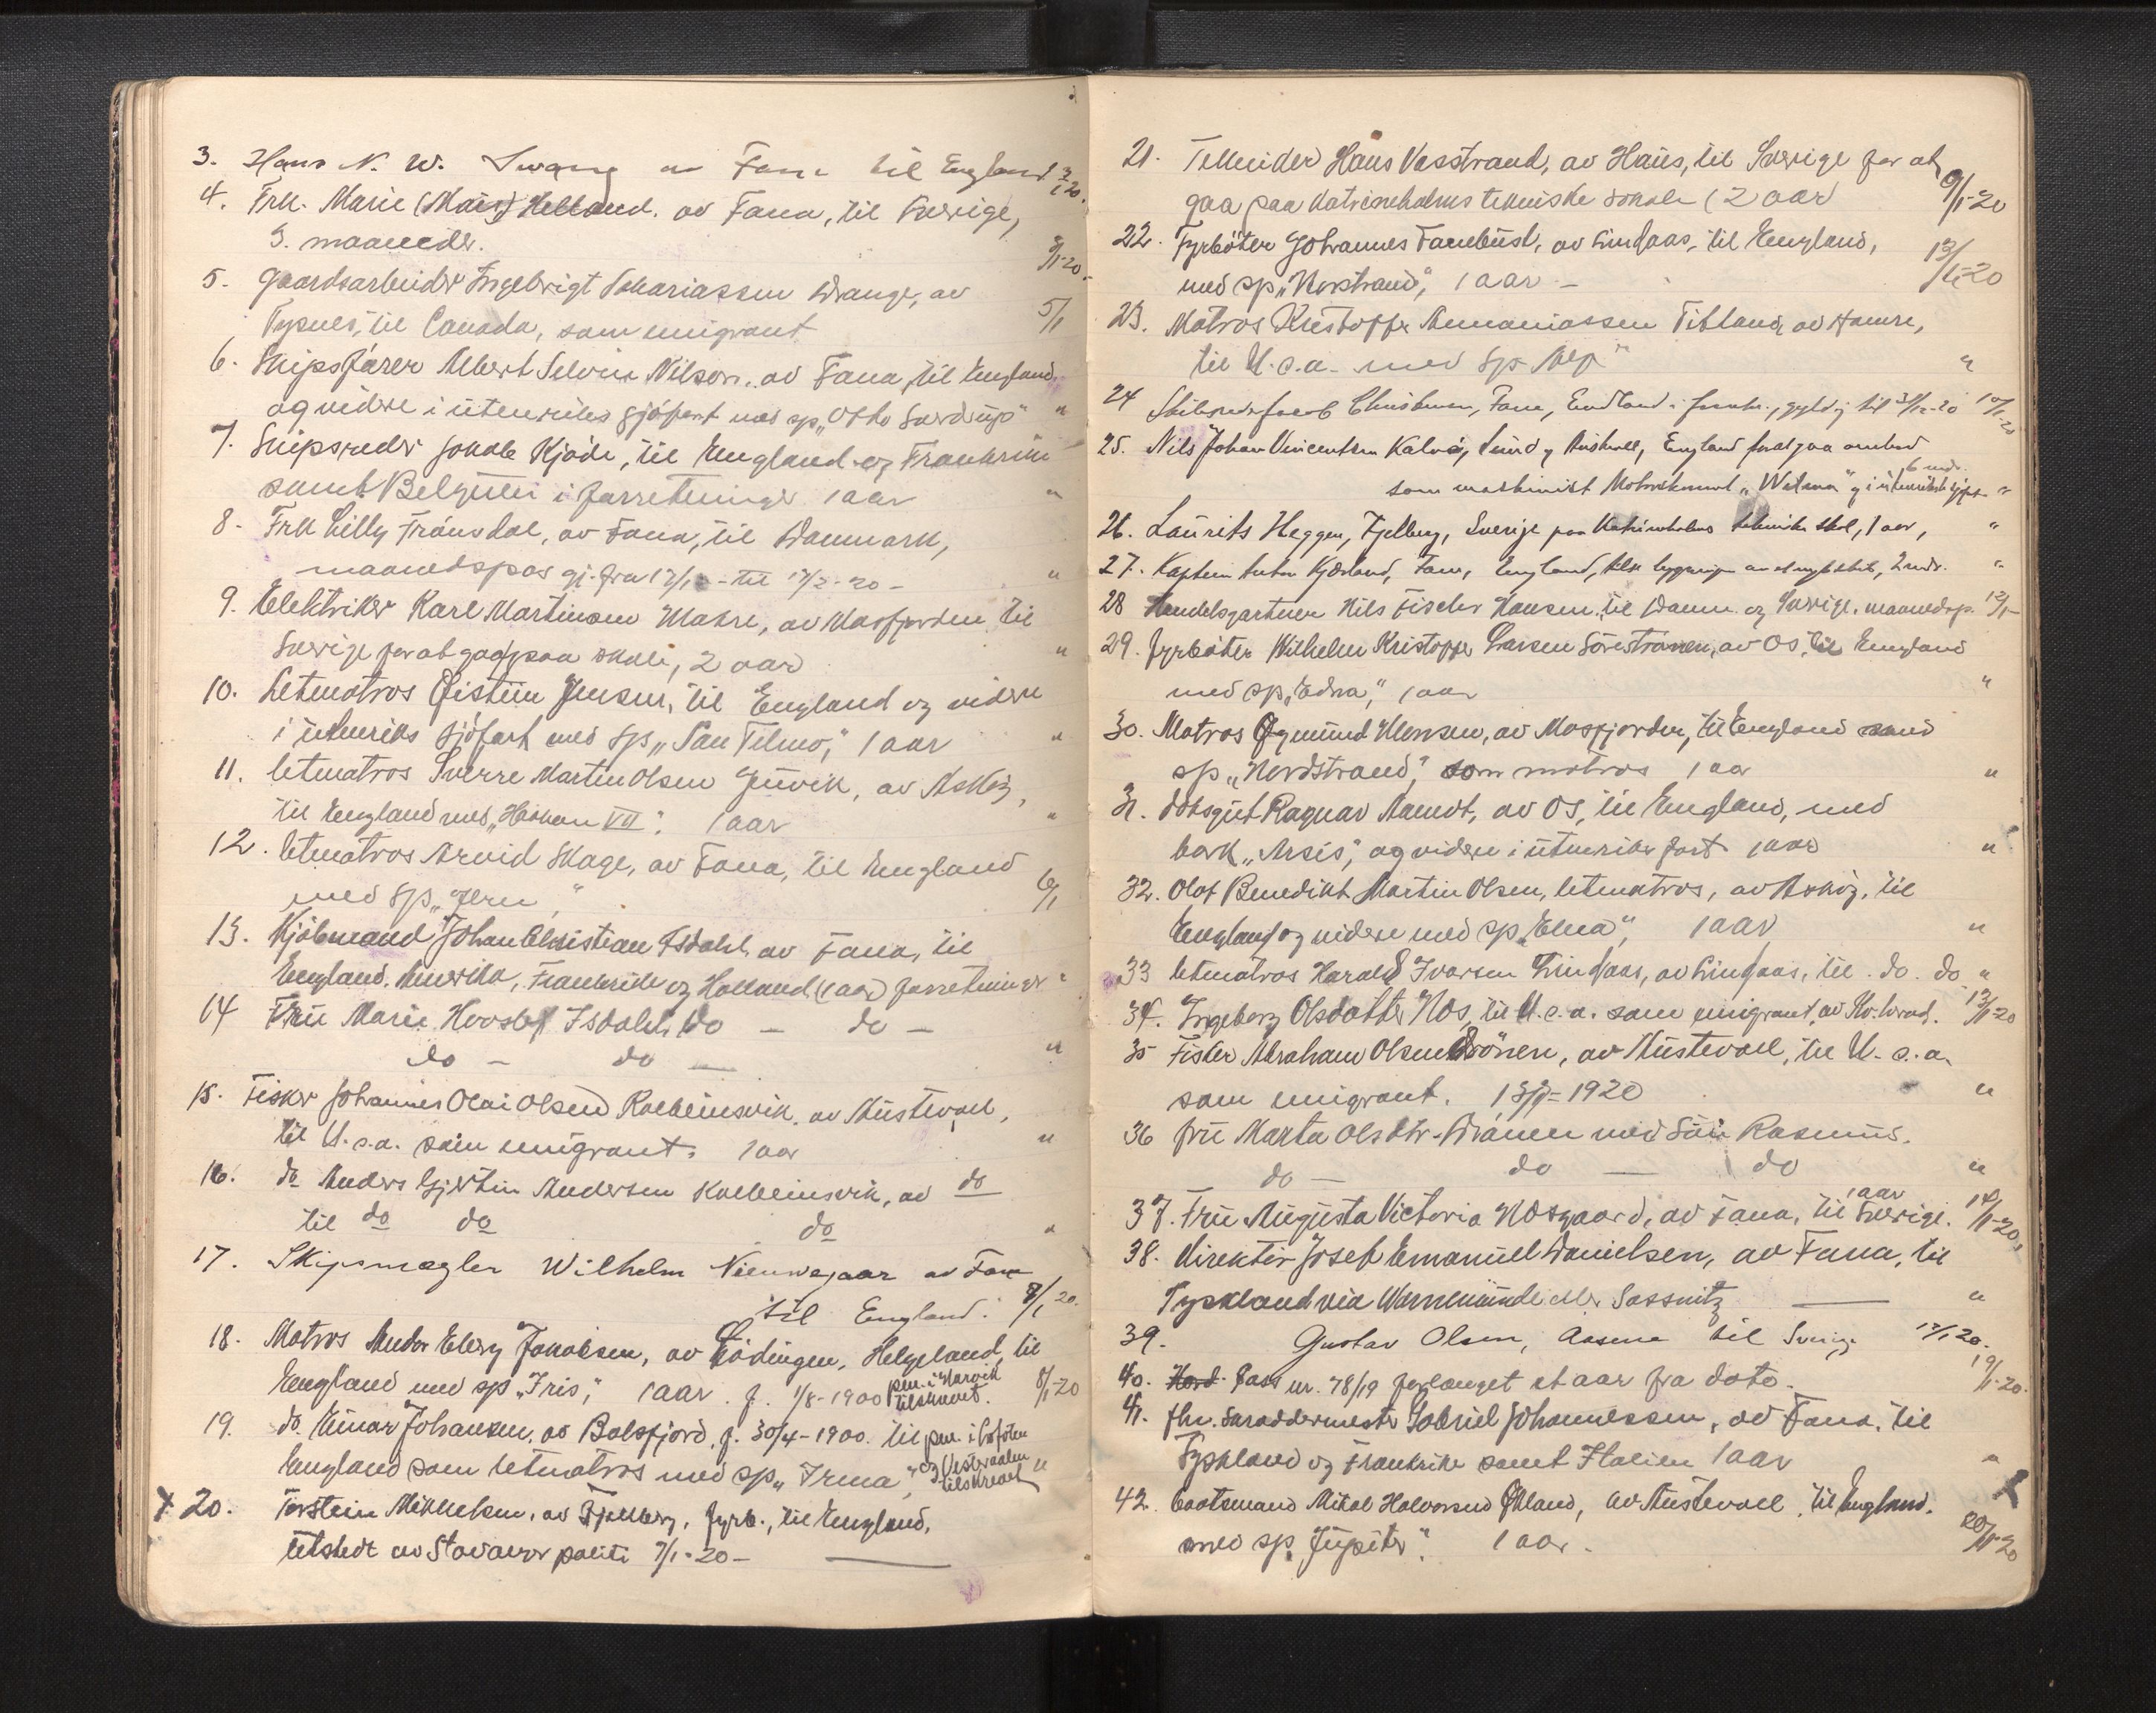 3. Hans N. W. av Fana til England 3/1 20.
4. Frk. Marie (Mais) Helland. av Fana, til Sverige,
3. maaneder. 3/1-20.
5. Gaardsarbeider Ingebrigt Sakariassen Drange, av
Tysnes, til Canada, som emigrant 5/1
6. Skipsfører Albert Nilsen. av Fana, til England
og videre i utenriks sjøfart med sp „Otto Sverdrup" "
7. Skipsreder Jakob Kjøde, til England og Frankrike
samt Belgien i forretninger 1 aar "
8. Frk Lilly Frønsdal, av Fana, til Danmark,
maanedspas gj. fra 17/1 - til 17/2-20 - "
9. Elektriker Karl Martinsen Matre, av Masfjorden til
Sverige for at gaa paa skole, 2 aar "
10. Letmatros Øistein Jensen, til England og videre
i utenriks sjøfart med sp „San Telmo," 1 aar "
11. letmatros Sverre Martin Olsen Juvik, av Askøy,
til England med „Haakon VII". 1 aar "
12. letmatros Arvid Skage, av Fana, til England
med sp „ " 6/1
13. Kjøbmand Johan Christian Isdahl, av Fana, til
England, Amerika, Frankrike og Holland (1 aar) forretninger "
14 Frue Marie Isdahl, do - do -
do - do - "
15. Fisker Johannes Olai Olsen Kolbeinsvik, av Austevoll,
til U.s.a. som emigrant. 1 aar "
16. do Anders Gjertin Andersen Kolbeinsvik, av do
til do do do "
17. Skipsmægler Wilhelm Nieuwejaar av Fana
til England. 8/1 20.
18. Matros Jakobsen, av Lødingen, Helgeland, til
England med sp „Iris," 1 aar. f. 1/8-1900 pm. i Narvik tilskrevet. 8/1-20
19. do. Einar Johansen, av Balsfjord, f. 30/4-1900. til pm. i Lofoten
England som letmatros med sp „Irma," og Vesteraalen tilskrevet "
x 20. Torstein Mikkelsen, av Fjelberg, fyrb., til England,
utstedt av Stavanger politi 7/1-20 -
21. Tekniker Hans Vasstrand, av Haus, til Sverige for at
gaa paa Katrineholms tekniske skole (2 aar 9/1-20
22. Fyrbøter Johannes Fanebust, av Lindaas, til England,
med sp „Norstrand", 1 aar - 13/1-20
23. Matros Kristoffer Ananiassen Titland, av Hamre,
til U.s.a. med sp " "
24 Jacob Christensen, Fana, England i forretn., gyldig til 31/12-20 10/1-20
25. Nils Johan Vincentsen Kalvøy, Sund y Austevoll, England for at gaa ombord
som maskinist Motorskonnert „Wilma" og i utenriksk sjøf. 6 mdr. "
26. Laurits Heggen, Fjelberg, Sverige paa Katrineholms tekniske skole, 1 aar, "
27. Kaptein Anton Kjørland, Fana, England, bygningen av et nyt skib, 2 mdr. "
28 Handelsgartner Nils Fischer Hansen, til Danm. og Sverige. maanedsp. 12/1-
29. fyrbøter Wilhelm Kristoffer Larsen Sørestrønen, av Os, til England
med sp „Edna," 1 aar "
30. Matros Øgmund Monsen, av Masfjorden, til England med
sp „Nordstrand," som matros 1 aar "
31. dæksgut Ragnar Aamot, av Os, til England, med
bark „Arsis," og videre i utenriks fart 1 aar "
32. Olaf Benedikt Martin Olsen, letmatros, av Askøy, til
England og videre med sp „Elna", 1 aar "
33 letmatros Harald Ivarsen Lindaas, av Lindaas, til. do. do "
34. Ingeborg Olsdotter Nos, til U.s.a. som emigrant, av 13/1-20
35 Fisker Abraham Olsen Drønen, av Austevoll, til U.s.a.
som emigrant. 13/1-1920 "
36 frue Marta Olsdtr. Drønen med søn Rasmus.
do - do - do "
37. Frue Augusta Victoria Nosgaard, av Fana, til Sverige. 1 aar 14/1-20.
38. Direktør Josef Emanuel Danielsen, av Fana, til
Tyskland via Warnemünde eller Sassnitz - "
39. Gustav Olsen, Aasane til Sverige 17/1 20.
40. Pass nr. 78/19 forlænget et aar fra dato. 19/1-20.
41. fhv. Skræddermester Gabriel Johannessen, av Fana, til
Tyskland og Frankrike samt Italien 1 aar "
42. baatsmand Mikal Halvorsen Økland, av Austevoll, til England.
med sp „Jupiter". 1 aar. 20/1-20